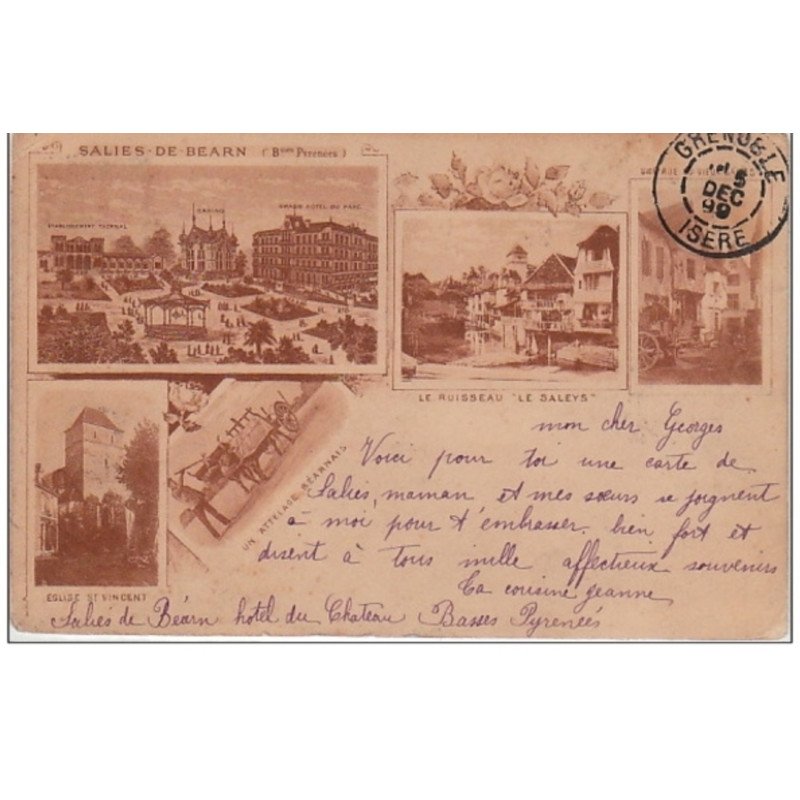 SALIES-DE-BEARN (Bses Pyrenées)
ETABLISSEMENT THERMAL
CASINO
GRAND HOTEL DU PARC
GRENOBLE
DEC
ISERE
LE RUISSEAU "LE SALEYS"
UN ATTELAGE BÉARNAIS
EGLISE ST VINCENT
mon cher Georges
Voici pour toi une carte de
Salies, maman et mes sœurs se joignent
à moi pour t'embrasser bien fort et
disent à tous mille affectieux souvenirs
Ta cousine jeanne
Salies de Béarn hotel du Chateau Basses Pyreneés